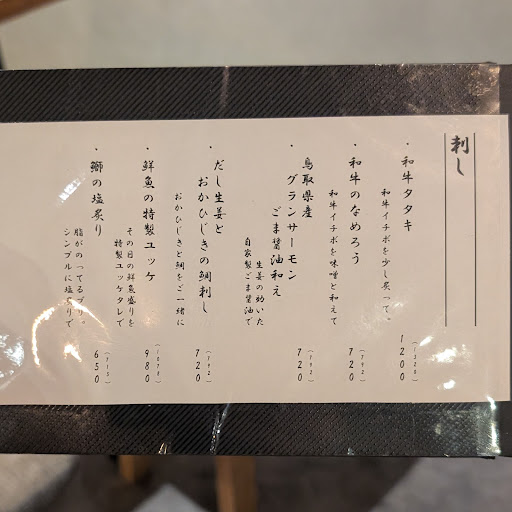 刺し
・和牛タタキ
和牛イチボを少し炙って。
1200
(1320)
・和牛のなめろう
和牛イチボを味噌と和えて
720
(792)
・鳥取県産
グランサーモン
ごま醤油和え
生姜の効いた
自家製ごま醤油で
720
(792)
・だし生姜と
おかひじきの鯛刺し
おかひじきと鯛をご一緒に
720
(792)
・鮮魚の特製ユッケ
その日の鮮魚盛りを
特製ユッケタレで
980
(1078)
・鰤の塩炙り
脂がのってるブリ。
シンプルに塩炙りで
650
(715)